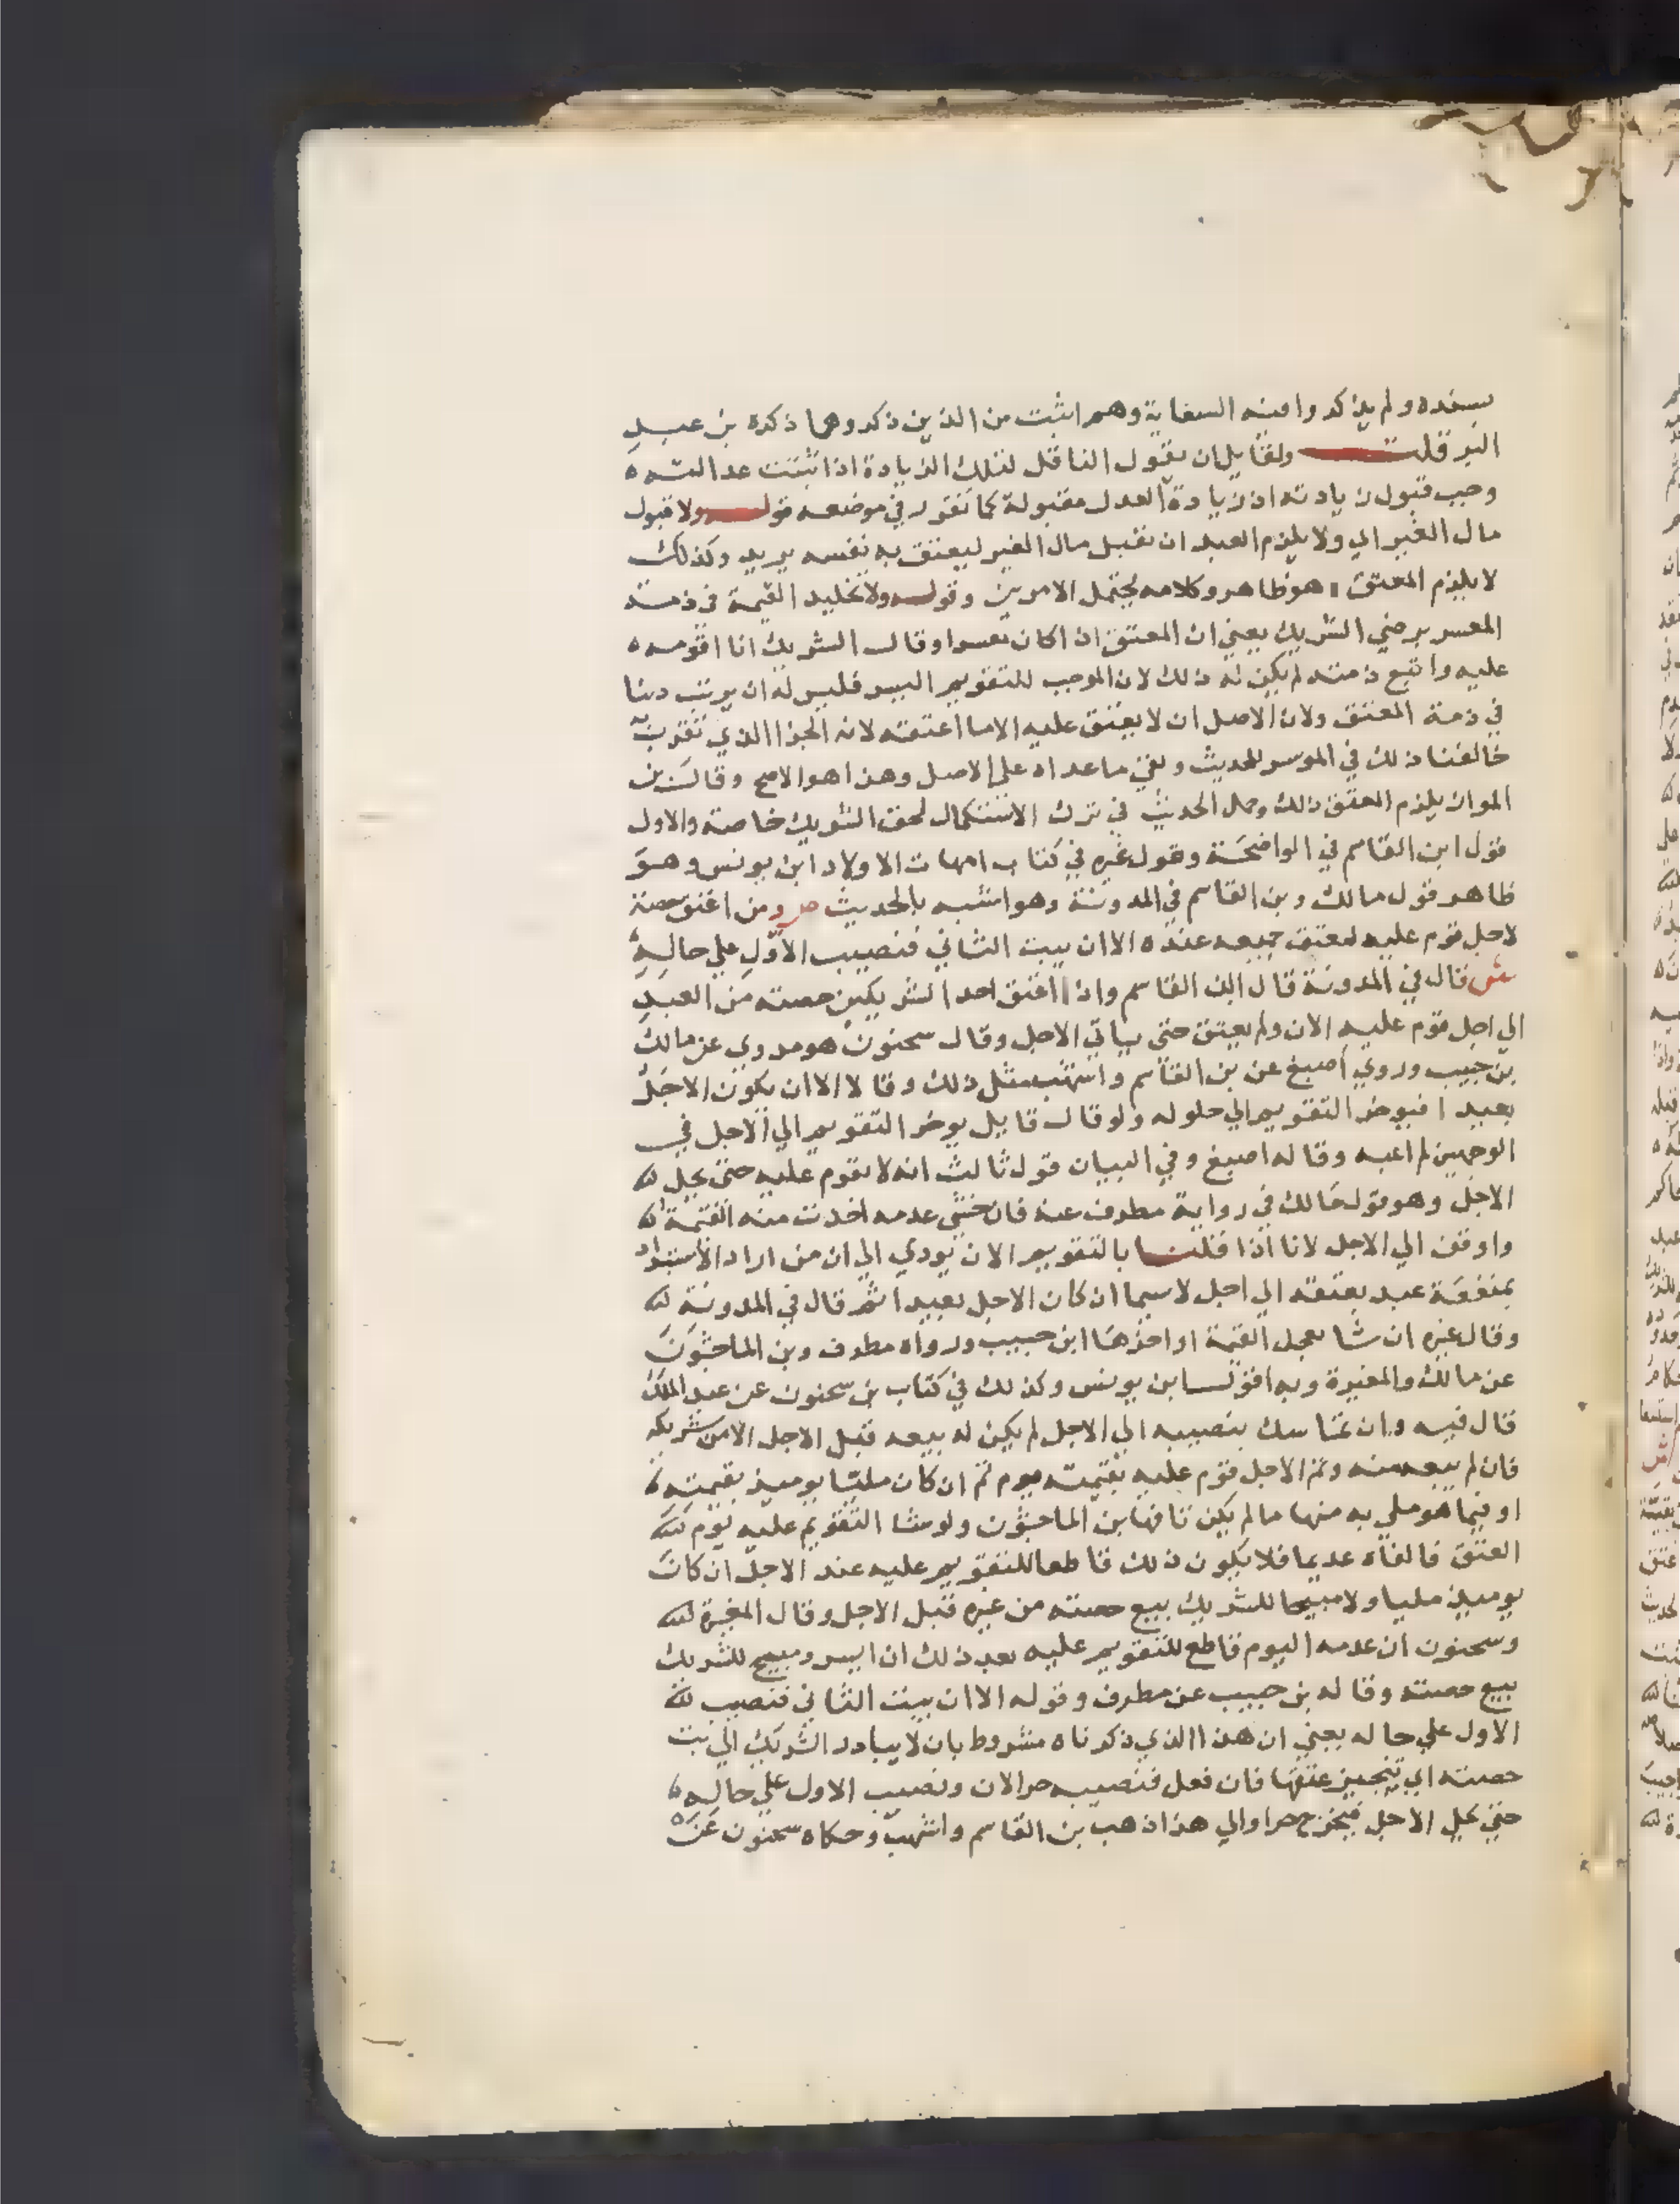 بسنده ولم يذكروا فيه السعاية وهم اثبت من الذين ذكروها ذكره بن عبد
البر قلت ولقايل ان يقول الناقل لتلك الزيادة اذا ثبتت عدالته
وجب قبول زيادته اذ زيادة العدل مقبولة كما تقرر في موضعه قوله ولا قبول
مال الغير اي ولا يلزم العبد ان يقبل مال الغير ليعتق به نفسه يريد وكذلك
لا يلزم المعتق هو ظاهر وكلامه يحتمل الامرين وقوله ولا تخليد القيمة في ذمة
المعسر برضي الشريك يعني ان المعتق اذا كان معسرا وقال الشريك انا اقومه
عليه واتبع ذمته لم يكن له ذلك لان الموجب للتقويم اليسر فليس له ان يرتب دينا
في ذمة المعتق ولان الاصل ان لا يعتق عليه الا ما اعتقه لانه الجزا الذي تقرب به
خالفنا ذلك في الموسر للحديث وبقي ما عداه علي الاصل وهذا هو الاصح وقال بن
المواز يلزم المعتق ذلك وحمل الحديث في ترك الاستكمال لحق الشريك خاصة والاول
قول ابن القاسم في الواضحة وقول غيره في كتاب امهات الاولاد ابن يونس وهو
ظاهر قول مالك وبن القاسم في المدونة وهو اشبه بالحديث ص ومن اعتق حصته
لاجل قوم عليه ليعتق جميعه عنده الا ان يبت الثاني فنصيب الاول علي حاله
ش قال في المدونة قال ابن القاسم واذا اعتق احد الشريكين حصته من العبد
الي اجل قوم عليه الان ولم يعتق حتى ياتي الاجل وقال سحنون هو مروي عن مالك
بن حبيب وروي اصبغ عن بن القاسم واشهب مثل ذلك وقالا الا ان يكون الاجل
بعيدا فيوخر التقويم الي حلوله ولو قال قايل يوخر التقويم الي الاجل في
الوجهين لم اعبه وقاله اصبغ وفي البيان قول ثالث انه لا يقوم عليه حتى يحل
الاجل وهو قول مالك في رواية مطرف عنه فان خشي عدمه اخذت منه القيمة
واوقف الي الاجل لانا اذا قلنا بالتقويم الان يودي الي ان من اراد الاستبداد
بمنفعة عبد يعتقه الي اجل لاسيما ان كان الاجل بعيدا ثم قال في المدونة
وقال غيره ان شا تعجل القيمة او اخرها ابن حبيب ورواه مطرف وبن الماجشون
عن مالك والمغيرة وبه اقول بن يونس وكذلك في كتاب بن سحنون عن عبد الملك
قال فيه وان تماسك بنصيبه الي الاجل لم يكن له بيعه قبل الاجل الا من شريكه
فان لم يبعه منه وتم الاجل قوم عليه بقيمته يوم تم ان كان مليا يوميذ بقيمته
او فيما هو ملي به منها ما لم يكن تافها بن الماجشون ولو شا التقويم عليه يوم
العتق فالفاه عديما فلا يكون ذلك قاطعا للتقويم عليه عند الاجل ان كان
يوميذ مليا ولا مبيحا للشريك بيع حصته من غيره قبل الاجل وقال المغيرة
وسحنون ان عدمه اليوم قاطع للتقويم عليه بعد ذلك ان ايسر ومبيح للشريك
بيع حصته وقاله بن حبيب عن مطرف وقوله الا ان يبت الثاني فنصيب
الاول علي حاله يعني ان هذا الذي ذكرناه مشروط بان لا يبادر الشريك الي بت
حصته اي تنجيز عتقها فان فعل فنصيبه حر الان ونصيب الاول علي حاله
حتى يحل الاجل فيخرج حرا والي هذا ذهب بن القاسم واشهب وحكاه سحنون عن